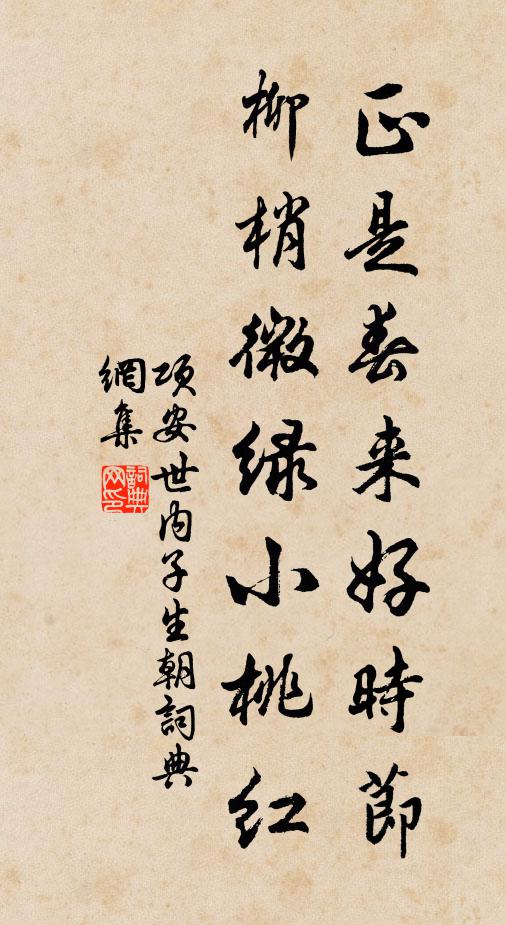 正是春来好時節
柳梢微緑小桃红
項安世内子生朝詞典
網集
詞典
网印